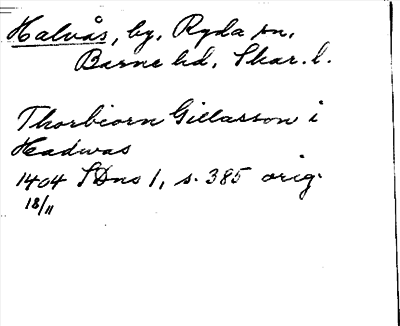 Halvås, by, Ryda sn,
Barne hd, Skar. l.
Thorbiorn Gillasson i
Hadwas
1404 SDns 1, s. 385 orig.
18/11